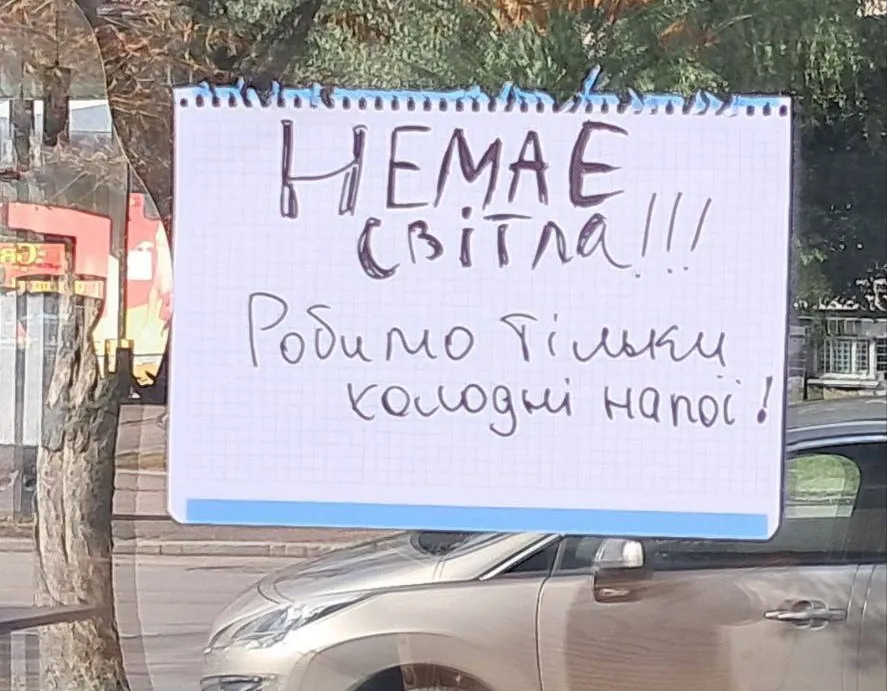 НЕМАЄ
світла!!!
Робимо тільки
холодні напої!